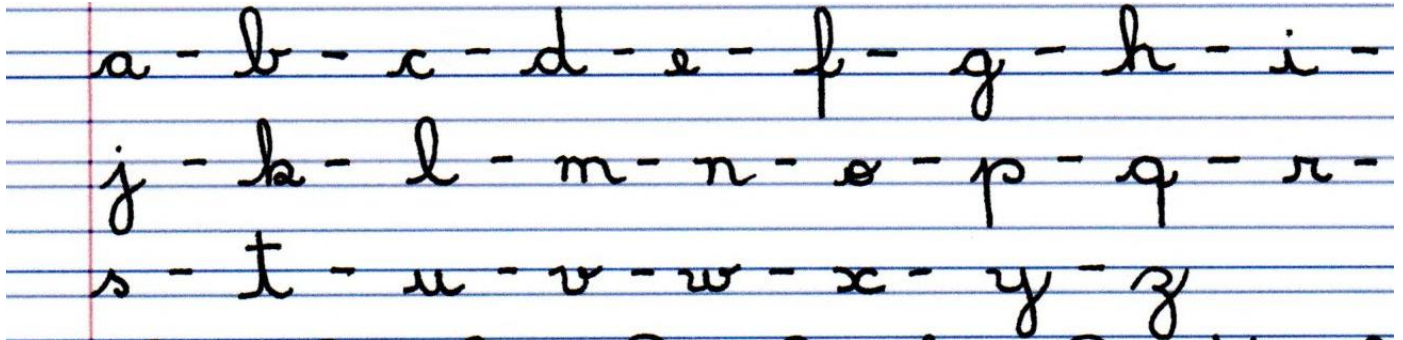 a - b - c - d - e - f - g - h - i -
j - k - l - m - n - o - p - q - r -
s - t - u - v - w - x - y - z